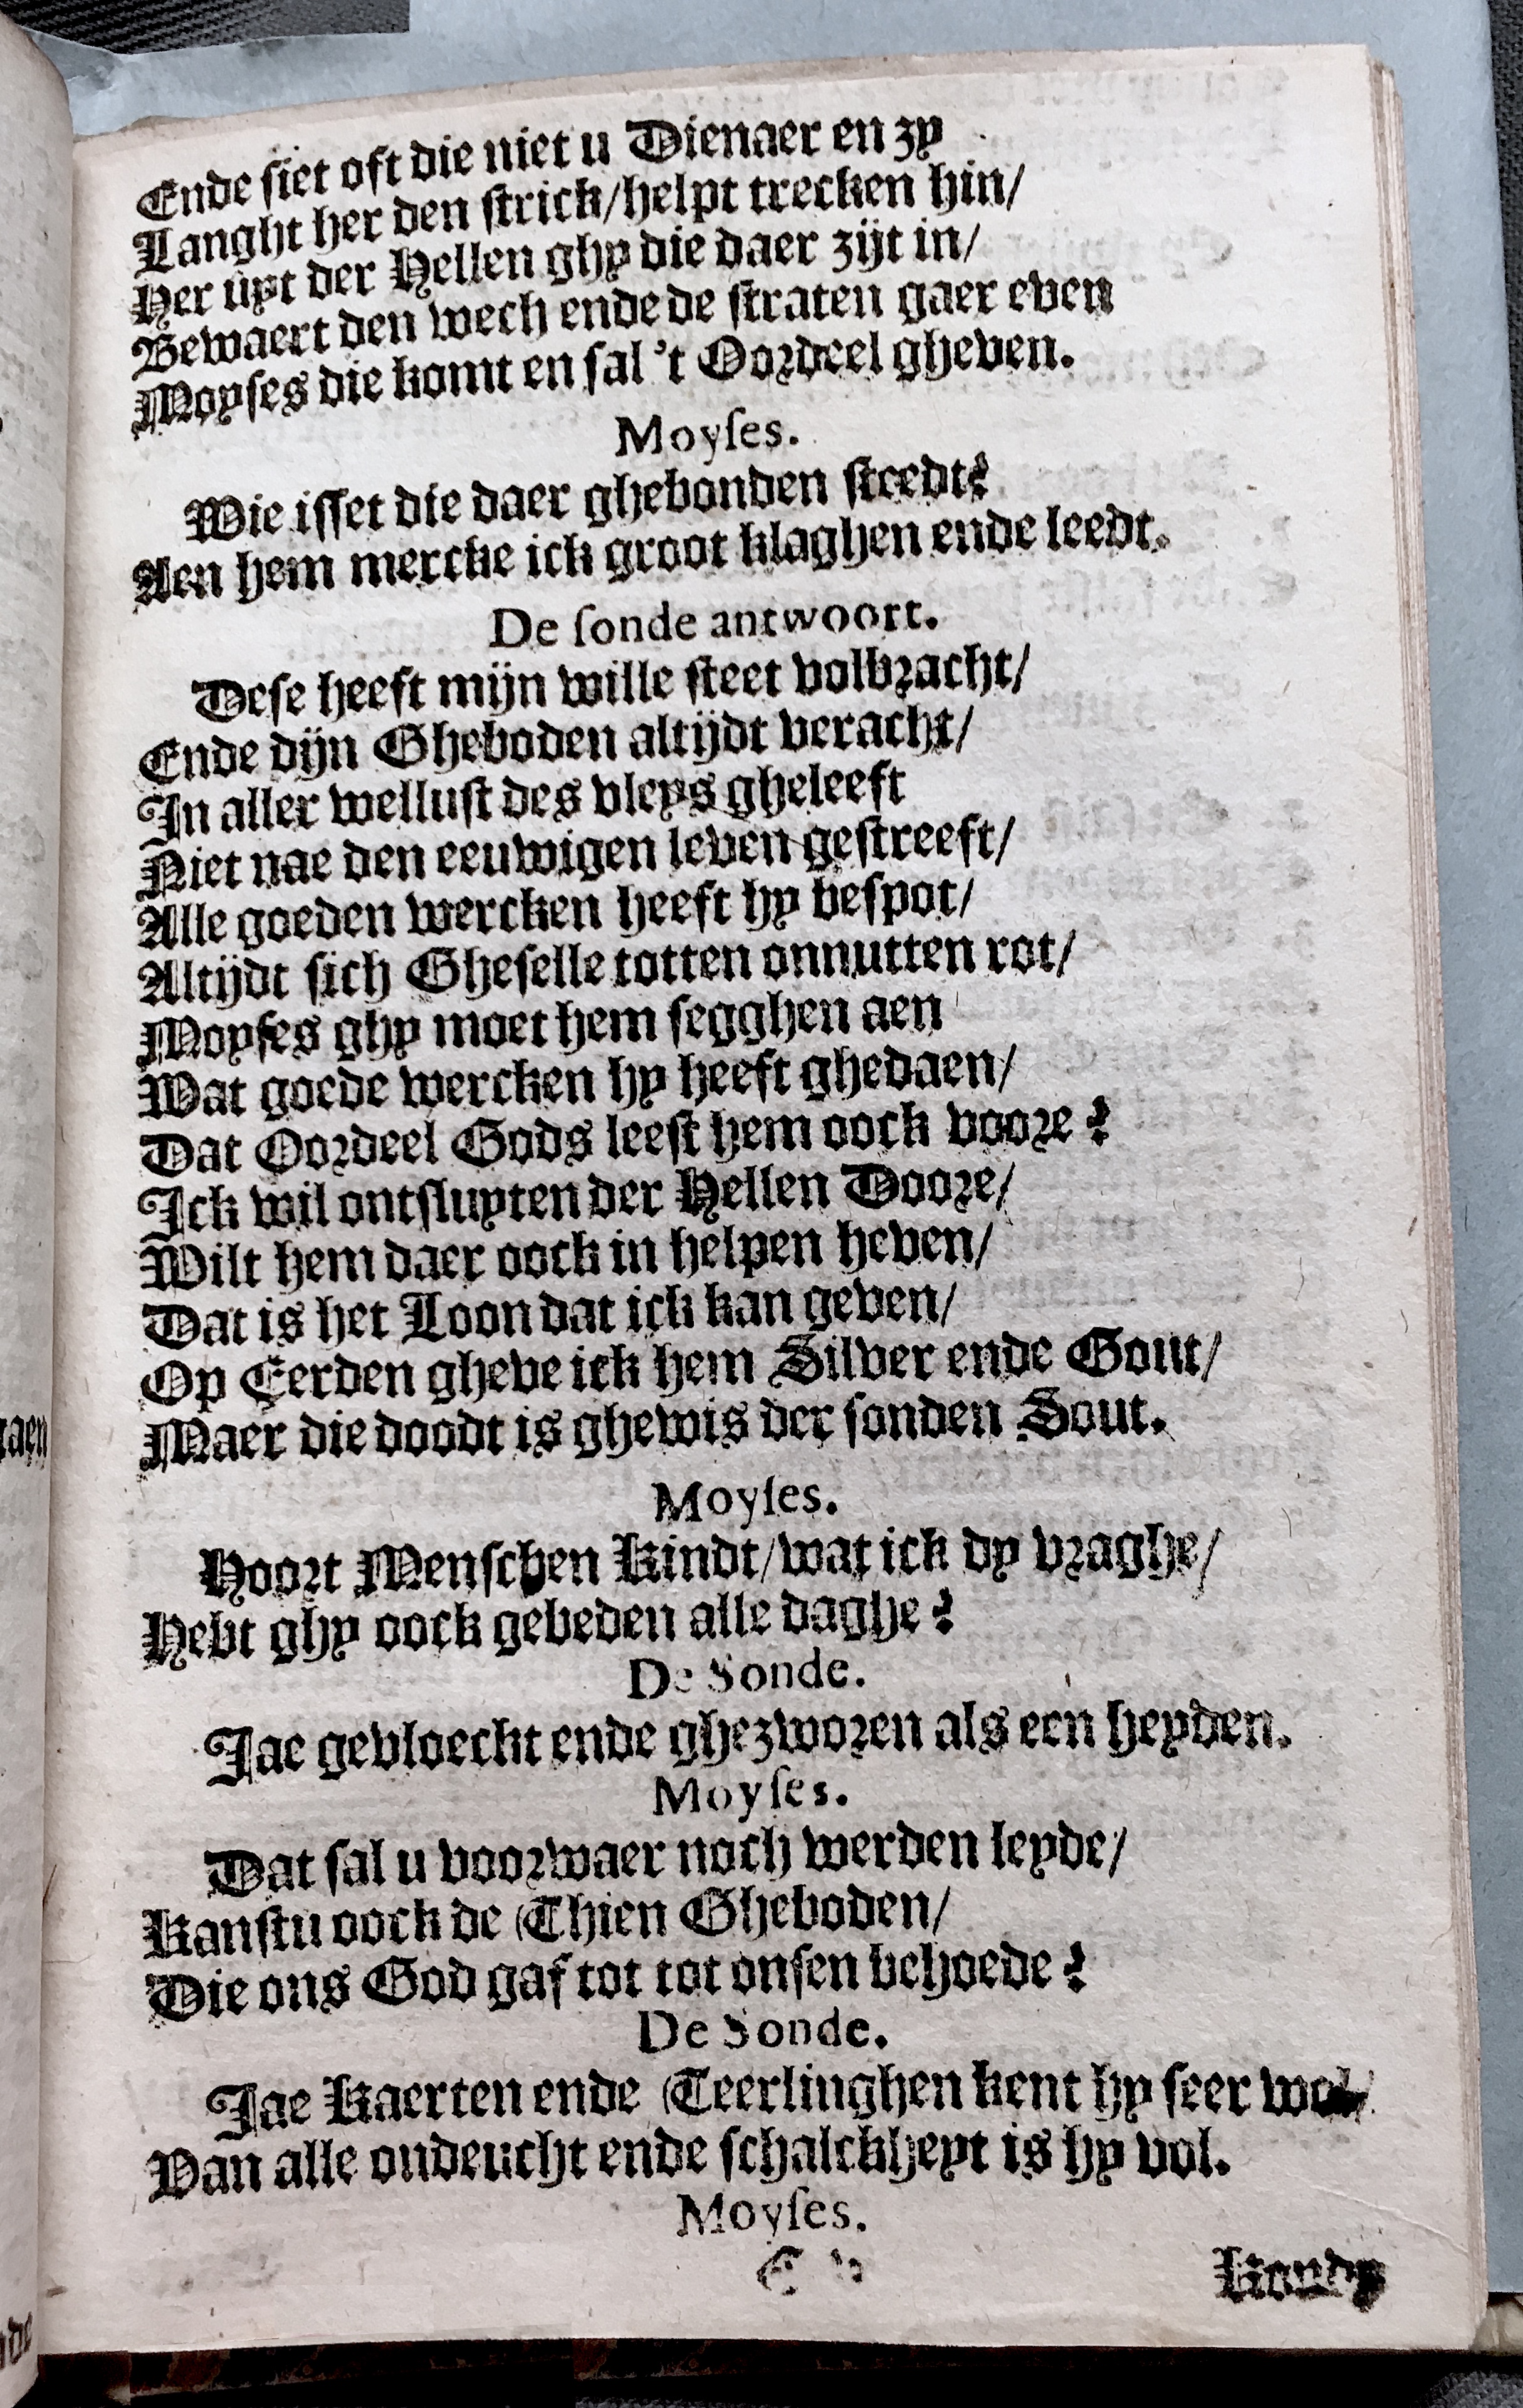 Ende siet oft die niet u Dienaer en zy
Langht her den strick/helpt trecken hin/
Her uyt der Hellen ghy die daer zijt in/
Bewaert den wech ende de straten gaer even
Moyses die komt en sal 't Oordeel gheven.
Moyses.
Wie isset die daer ghebonden steedt?
Aen hem mercke ick groot klaghen ende leedt.
De sonde antwoort.
Dese heeft mijn wille steet volbracht/
Ende dijn Gheboden altijdt veracht/
In aller wellust des vleys gheleeft
Niet nae den eeuwigen leven gestreeft/
Alle goeden wercken heeft hy bespot/
Altijdt sich Gheselle totten onnutten rot/
Moyses ghy moet hem segghen aen
Wat goede wercken hy heeft ghedaen/
Dat Oordeel Gods leest hem oock voore?
Ick wil ontsluyten der Hellen Doore/
Wilt hem daer oock in helpen heven/
Dat is het Loon dat ick kan geven/
Op Eerden gheve ick hem Silver ende Gout/
Maer die doodt is ghewis der sonden Sout.
Moyses.
Hoort Menschen Kindt/wat ick dy vraghe/
Hebt ghy oock gebeden alle daghe?
De Sonde.
Jae gevloeckt ende ghezworen als een heyden.
Moyses.
Dat sal u voorwaer noch werden leyde/
Kanstu oock de Thien Gheboden/
Die ons God gaf tot tot onsen behoede?
De Sonde.
Jae Kaerten ende Teerlinghen kent hy seer wol/
Van alle ondeucht ende schalckheyt is hy vol.
Moyses.